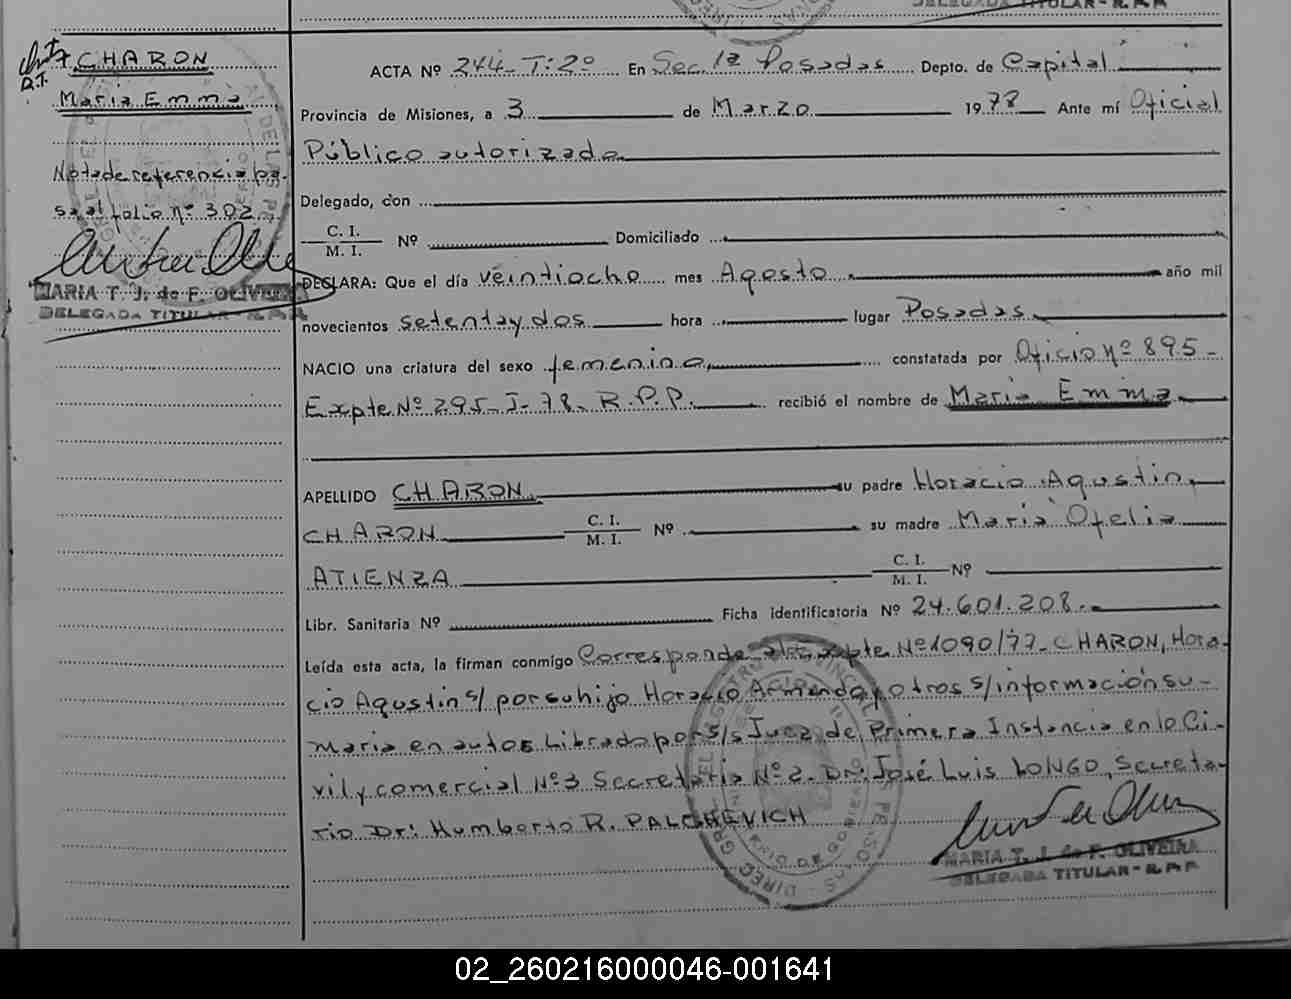 CHARON
Maria Emma
Nota de referencia pa-
sa al folio nº 302
MARIA T. J. de F. OLIVEIRA
DELEGADA TITULAR - R.P.P
DELEGADA TITULAR - R.P.P
ACTA Nº 244-T:2º En Sec. 1ª Posadas Depto. de Capital
Provincia de Misiones, a 3 de Marzo 1978 Ante mí Oficial
Público autorizado
Delegado, con
C. I.
M. I. Nº Domiciliado
DECLARA: Que el día veintiocho mes Agosto año mil
novecientos setenta y dos hora lugar Posadas
NACIO una criatura del sexo femenino, constatada por Oficio Nº 895-
Expte Nº 295-J-78. R.P.P. recibió el nombre de Maria Emma
APELLIDO CHARON su padre Horacio Agustin
CHARON C. I. M. I. Nº su madre Maria Ofelia
ATIENZA C. I. M. I. Nº
Libr. Sanitaria Nº Ficha identificatoria Nº 24.601.208.-
Leída esta acta, la firman conmigo Corresponde al Expte Nº 1090/77- CHARON, Hora-
cio Agustin s/ por su hijo Horacio Armando y otros s/información su-
maria en autos Librado por S/s Juez de Primera Instancia en lo Ci-
vil y comercial Nº 3 Secretaria Nº 2. Dr: José Luis LONGO, Secreta-
rio Dr: Humberto R. PALCHEVICH
MARIA T. J. de F. OLIVEIRA
DELEGADA TITULAR - R.P.P
02_260216000046-001641